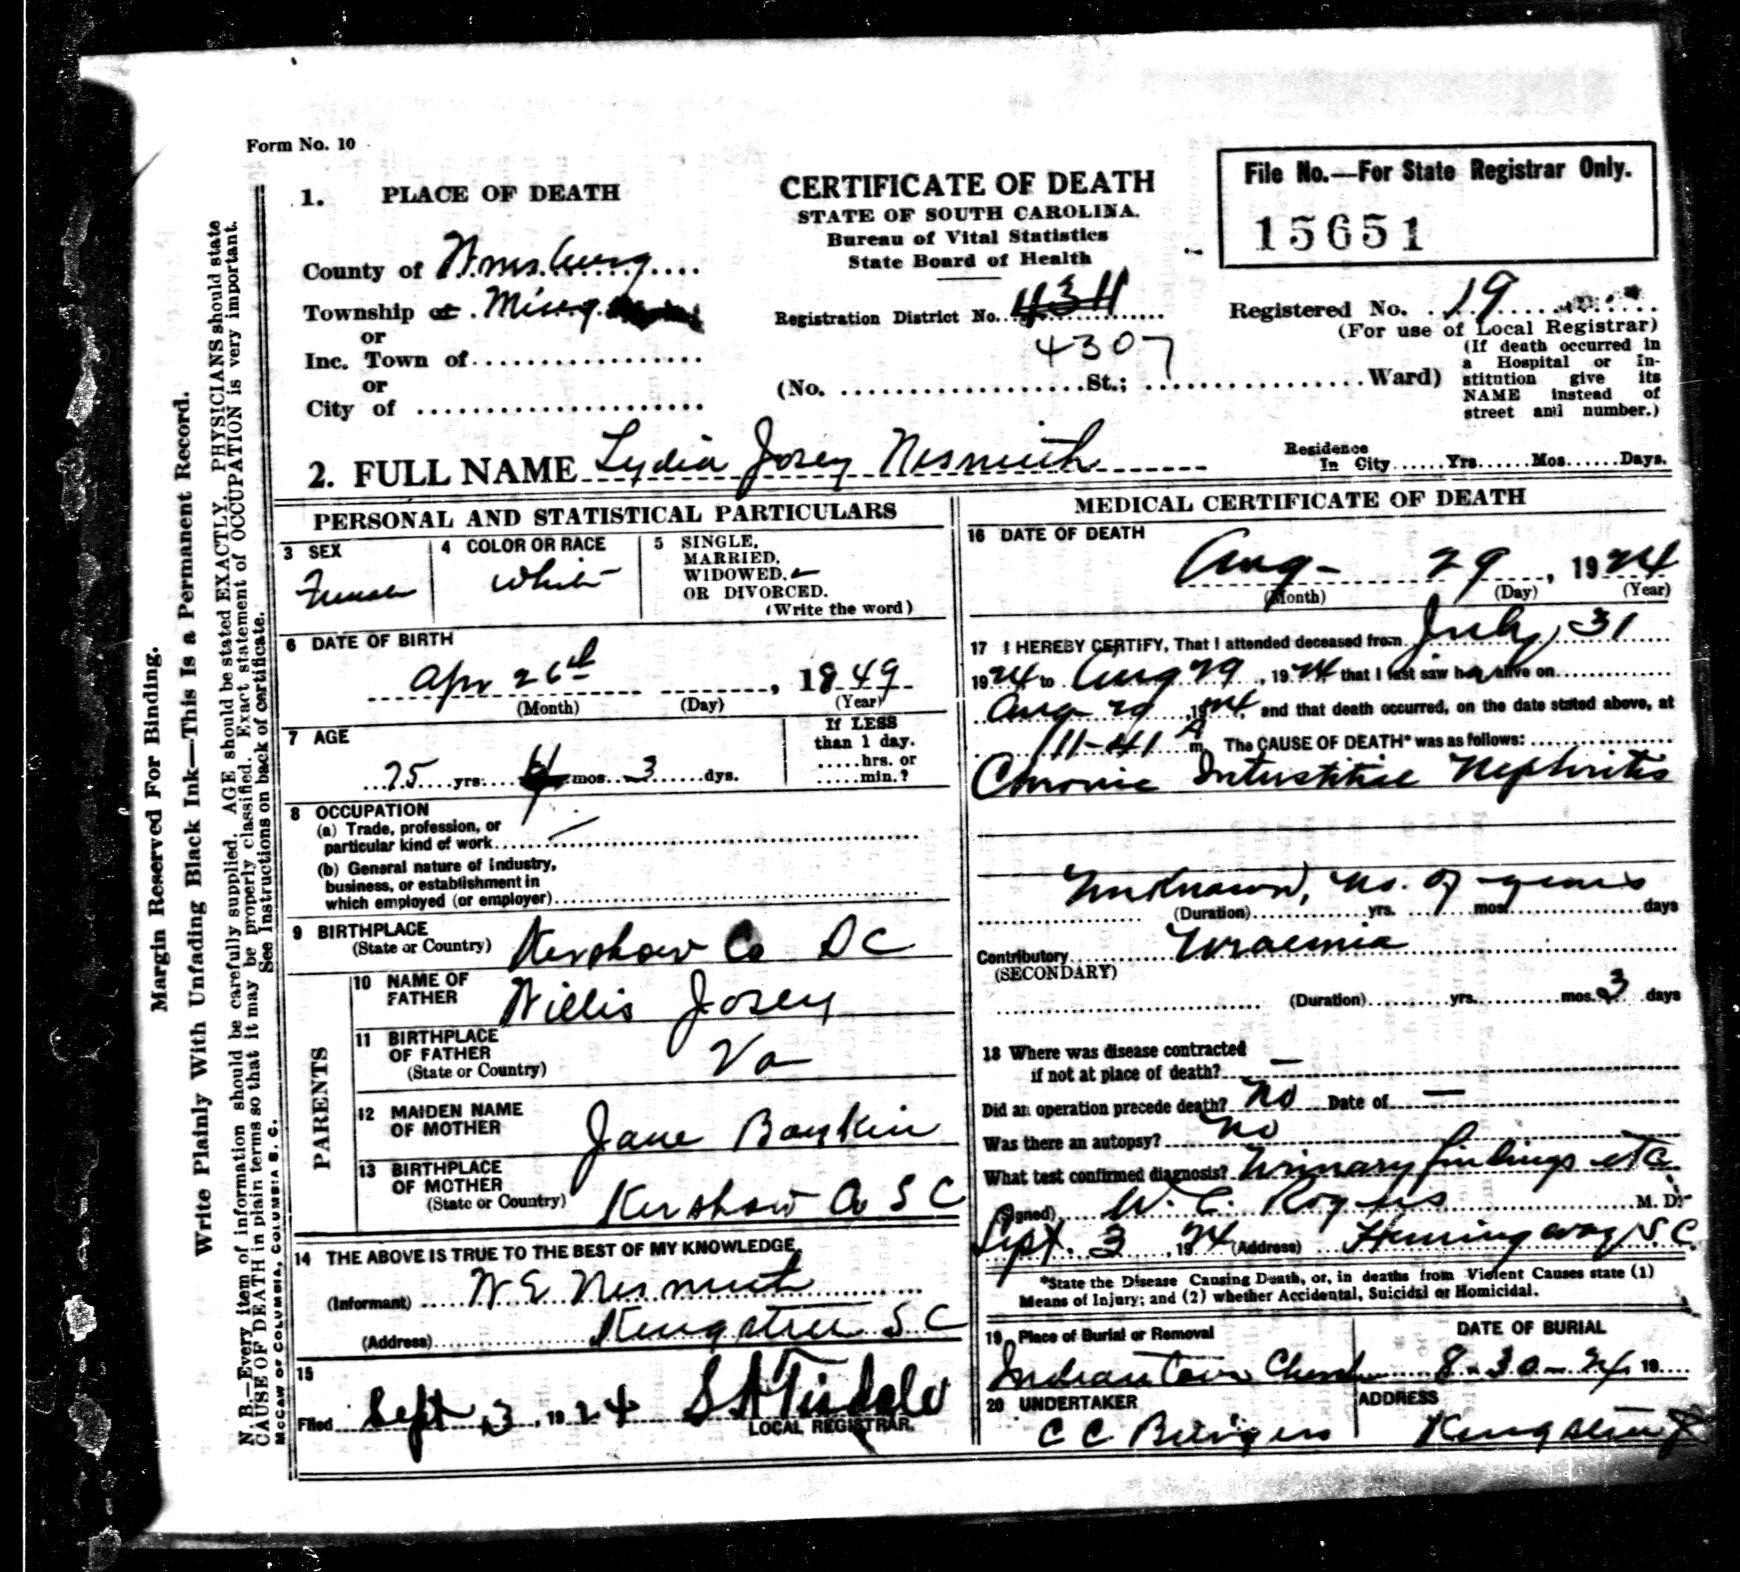 Form No. 10
1. PLACE OF DEATH
County of Wmsburg
Township of Ming
or
Inc. Town of
or
City of
CERTIFICATE OF DEATH
STATE OF SOUTH CAROLINA.
Bureau of Vital Statistics
State Board of Health
Registration District No. 4311
4307
(No. St.; Ward)
File No.—For State Registrar Only.
15651
Registered No. 19
(For use of Local Registrar)
(If death occurred in
a Hospital or In-
stitution give its
NAME instead of
street and number.)
2. FULL NAME Lydia Josey Nesmith
Residence
In City Yrs. Mos. Days.
PERSONAL AND STATISTICAL PARTICULARS
3 SEX
Female
4 COLOR OR RACE
White
5 SINGLE,
MARRIED,
WIDOWED,
OR DIVORCED.
(Write the word)
6 DATE OF BIRTH
Apr 26th, 1849
(Month) (Day) (Year)
7 AGE
75 yrs. 4 mos. 3 dys.
If LESS
than 1 day.
hrs. or
min.?
8 OCCUPATION
(a) Trade, profession, or
particular kind of work
(b) General nature of Industry,
business, or establishment in
which employed (or employer)
9 BIRTHPLACE
(State or Country) Kershaw Co S C
PARENTS
10 NAME OF
FATHER Willis Josey
11 BIRTHPLACE
OF FATHER
(State or Country) Va
12 MAIDEN NAME
OF MOTHER Jane Boykin
13 BIRTHPLACE
OF MOTHER
(State or Country) Kershaw Co S C
14 THE ABOVE IS TRUE TO THE BEST OF MY KNOWLEDGE,
(Informant) W E Nesmith
(Address) Kingstree S C
15
Filed Sept 3, 1924 S A Tisdale
LOCAL REGISTRAR.
MEDICAL CERTIFICATE OF DEATH
16 DATE OF DEATH
Aug- 29, 1924
(Month) (Day) (Year)
17 I HEREBY CERTIFY, That I attended deceased from July, 31
1924 to Aug 29, 1924 that I last saw her alive on
Aug 29, 1924, and that death occurred, on the date stated above, at
m. The CAUSE OF DEATH* was as follows:
Chronic Interstitial Nephritis
Unknown, no. of years
(Duration) yrs. mos. days
Contributory Uraemia
(SECONDARY)
(Duration) yrs. mos. 3 days
18 Where was disease contracted
if not at place of death? —
Did an operation precede death? No Date of —
Was there an autopsy? No
What test confirmed diagnosis? Urinary findings etc
(Signed) W. C. Rogers M. D.
Sept. 3, 1924 (Address) Hemingway S. C.
*State the Disease Causing Death, or, in deaths from Violent Causes state (1)
Means of Injury; and (2) whether Accidental, Suicidal or Homicidal.
19 Place of Burial or Removal
Indian Town Church
DATE OF BURIAL
8-30-24 19
20 UNDERTAKER
C C Burgess
ADDRESS
Kingstree
Margin Reserved For Binding.
Write Plainly With Unfading Black Ink—This Is a Permanent Record.
N. B.—Every item of information should be carefully supplied. AGE should be stated EXACTLY. PHYSICIANS should state
CAUSE OF DEATH in plain terms so that it may be properly classified. Exact statement of OCCUPATION is very important.
See Instructions on back of certificate.
McCAW OF COLUMBIA, COLUMBIA S. C.